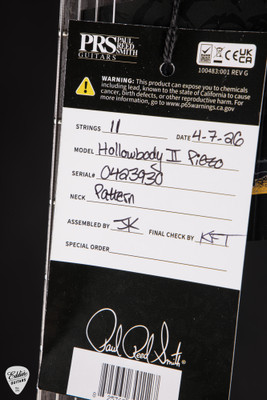 PRS PAUL REED SMITH
GUITARS
UK CA CE
100483:001 REV G
WARNING: This product can expose you to chemicals
known to the State of California to cause
cancer, birth defects, or other reproductive harm. For
more information, go to www.p65warnings.ca.gov
STRINGS 11 DATE 4-7-26
MODEL Hollowbody II Piezo
SERIAL# 0423920
NECK Pattern
ASSEMBLED BY SK FINAL CHECK BY KFT
SPECIAL ORDER
Paul Reed Smith
Eddie's
GUITARS